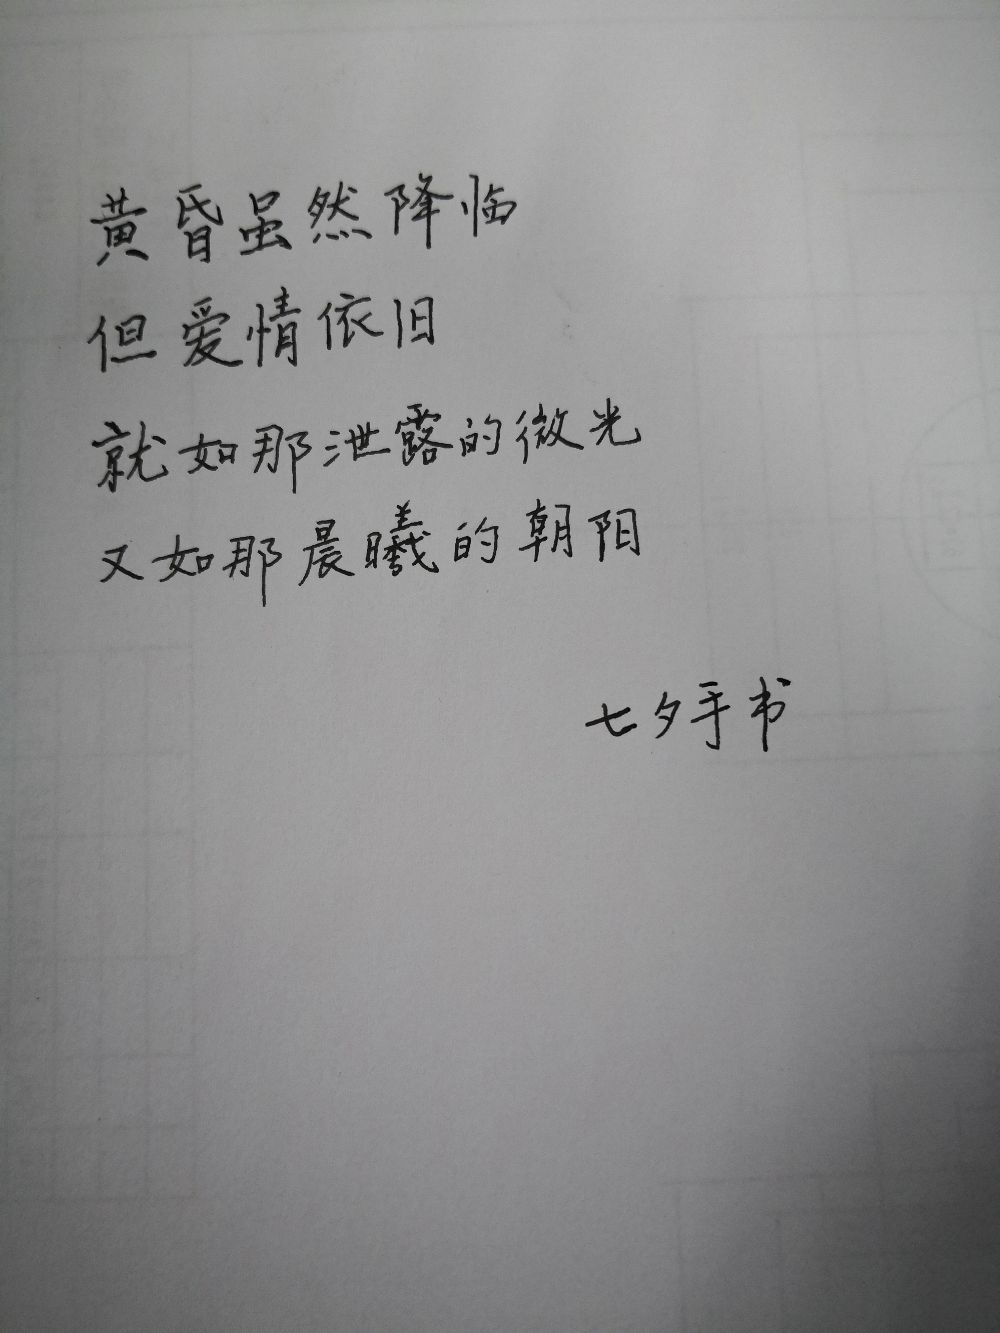 黄昏虽然降临
但爱情依旧
就如那泄露的微光
又如那晨曦的朝阳
七夕手书